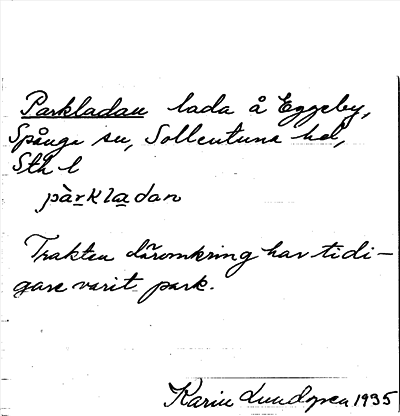 Parkladan lada å Eggeby,
Spånga sn, Sollentuna hd,
Sth l
pàrkladan
Trakten däromkring har tidi-
gare varit park.
Karin Lundgren 1935